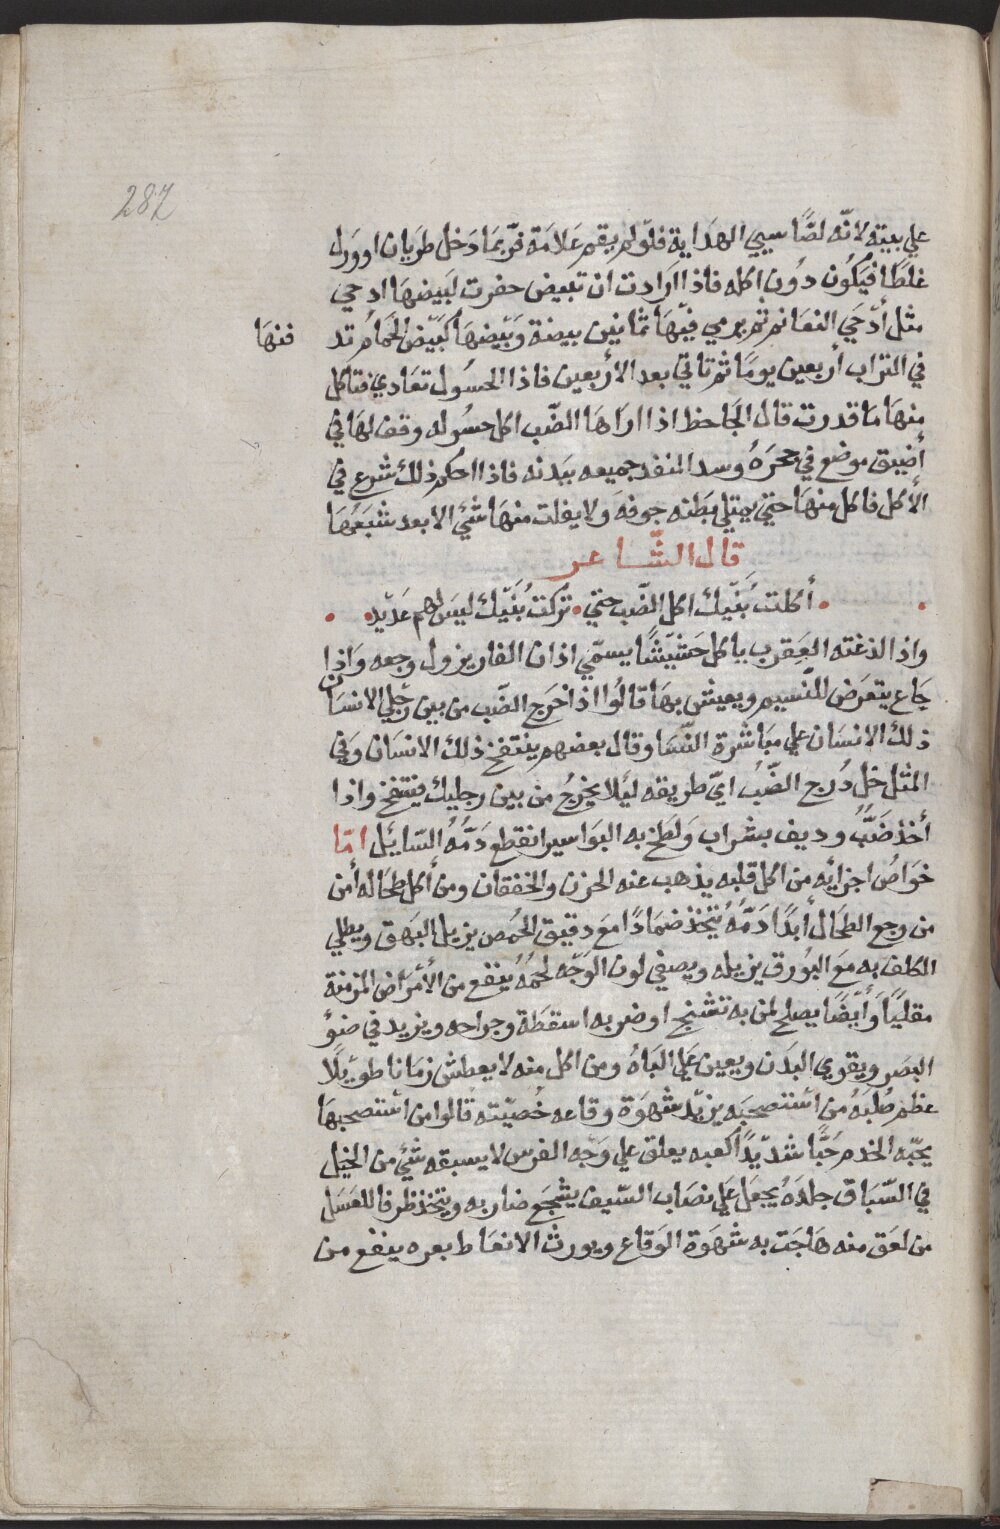 287
علي بيته لانّه لضّا سيي الهدَاية فلّو لم يقم عَلامَة فرّبمَا دَخل طربان او ورل
غلطَا فيَكُون دوُن اكله فاذا ارَادت ان تبيض حفرت لبَيضهَا ادحي
مثل أدّحَي النعَا ثم ترمي فيّهَا ثمَانين بيضة وَبَيّضهَا كبَيّض الحمَامُ تد فنهَا
في التراب أربعين يومًا ثم تاتي بعد الأربعين فاذا الحسُول تعَادي فتاكل
منهَا مَا قدرت قال الجَاحظ اذا ارَاهَا الضّب اكل حسُوله وقف لهَا في
أضيق موضع في جحرَهُ وسد المنفد جميعه ببَدنه فاذا احكم ذلك شرع في
الأكل فاكل منهَا حتي يمتلي بَطنه جوفهَ ولا يفلت منهَا شئي الا بعد شبَعهَا
قال الشّاعر
أكلتَ بُنَيّك اكل الضّب حتي • تركتُ بُنَيّك ليسَ لهم عَدّيد •
واذا لذغته العَقرب ياكل حَشيّشًا يسمّي اذان الفار يزول وجعه وَاذا
جَاع يتعرَض للنّسيم ويعيش بهَا قالُوا اذا خرَج الضّب من بين رجّلي الانسَان
ذلك الانسَان علي مبَاشرة النّسَا وقال بعضهم ينتفخ ذلك الانسَان وَفي
المثل خل دُرج الضّبُ ايّ طريقه ليُلا يخرجُ من بين رجليك فيتنفخ واذا
أخذ ضَبُّ وديف بشراب وَلطخ به البوَاسير انقطع دَمّهُ السّايَل امّا
خوَاصُ اجزايُه من اكل قلبه يذهب عنه الحزن والخفقان ومن أكل طحَاله أمن
من وجع الطحَال أبدًا دَمّهُ يتّخذ ضمَادًا مَع دقيق الحُمص يزيل البَهق ويطلي
الكلف به مَع البوُرق يزيله ويصفي لون الوَجّه لحمُهُ ينفع من الأمّرَاض المزمنة
مقليًا وَأيَضًا يصلح لمن به تشنج او ضربه اسقَطة وجراحه ويزيد في ضوُ
البَصر ويقوي البدَن ويعين عَلي البَاهُ ومن اكل منه لا يعطش زمَانا طوَيلًا
عظم صُلبَهُ من اسّتصحبَه يزيّد شهوَة وقاعه خُصيّته قالوا من اسّتصحبهَا
يحبّه الخدم حُبًّا شديّدًا كعبه يعلق علي وَجّه الفرس لا يسبقه شئي من الخيَل
في السّبَاق جلدَهُ يجعَل عَلي نصَاب السّيف يشّجَع ضاربه ويتخذ ظرفا للعسَل
من لعَق منه هَاجَت به شهوَة الوَقاع ويورث الانعَاط بعره ينفع من